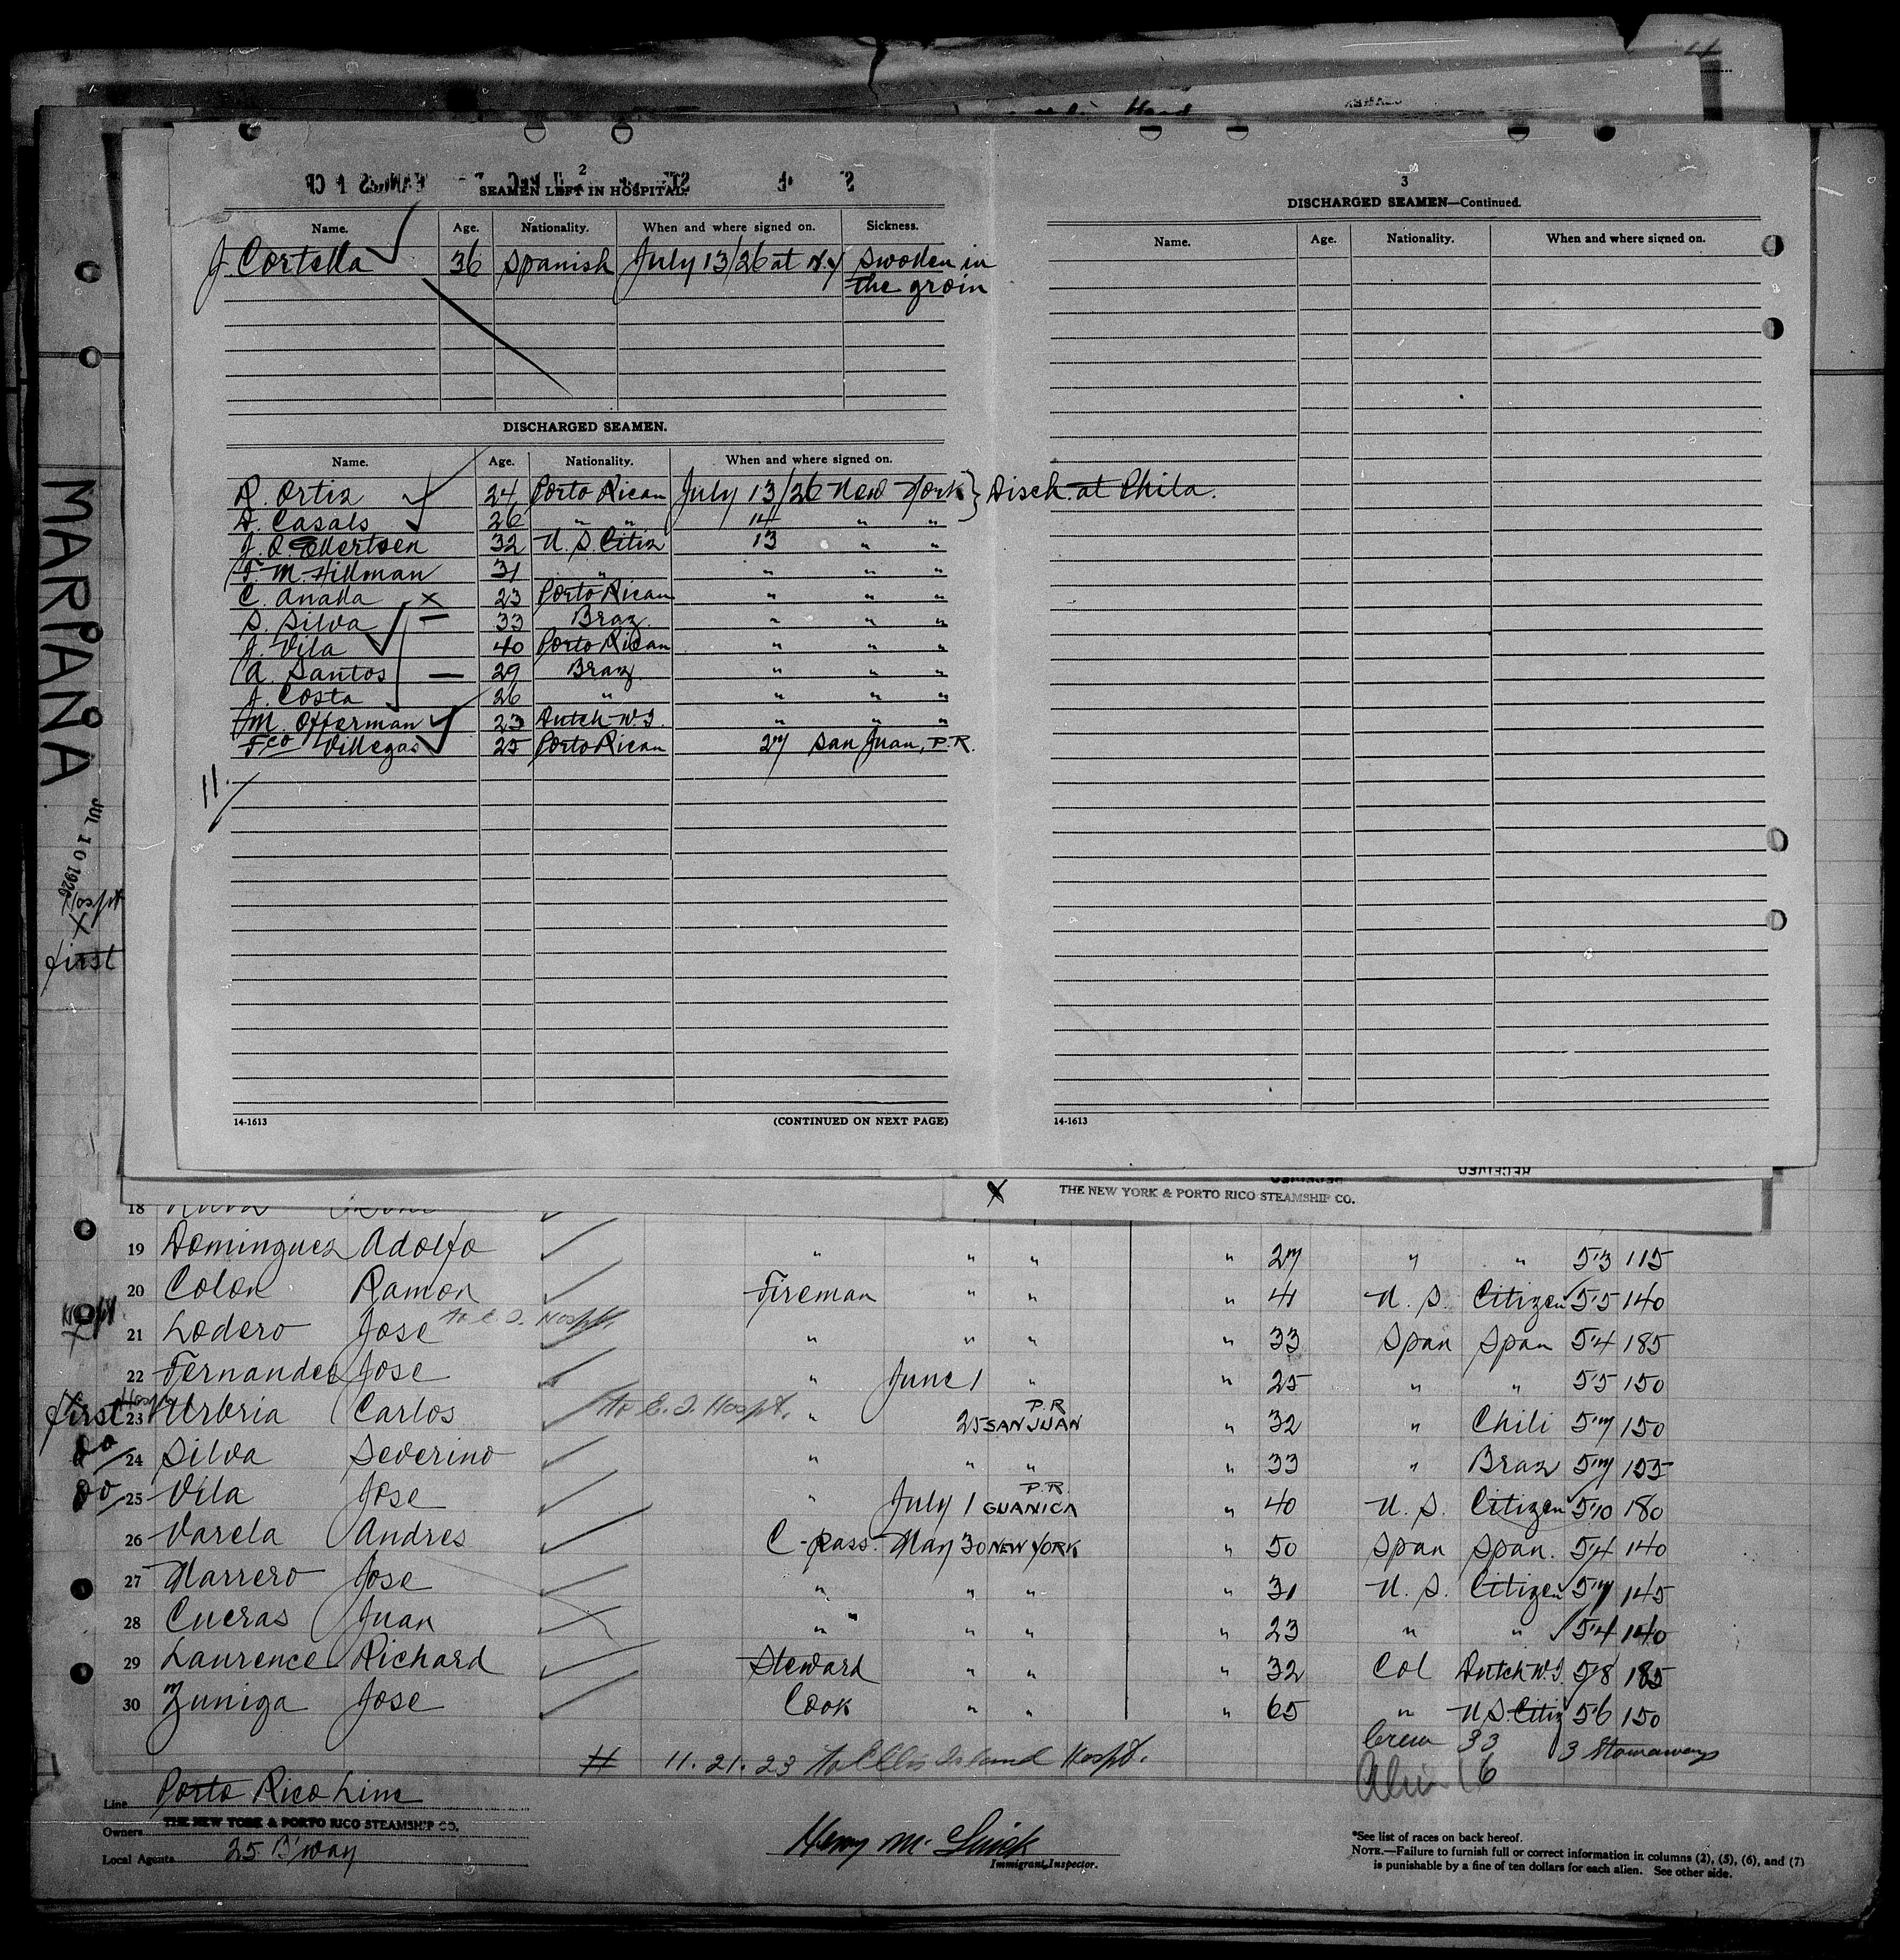 2
SEAMEN LEFT IN HOSPITAL.
Name. Age. Nationality. When and where signed on. Sickness.
J Cortella 36 Spanish July 13/26 at N.Y swollen in
the groin
DISCHARGED SEAMEN.
Name. Age. Nationality. When and where signed on.
R. Ortiz 24 Porto Rican July 13/26 New York } Disch. at Phila.
D. Casals 26 " " 14 " "
32 U. S. Citiz 13 " "
F. M. Hillman 31 " " " "
C. Analla x 23 Porto Rican " " "
S. Silva — 33 Braz. " " "
J. Vila 40 Porto Rican " " "
A. Santos — 29 Braz " " "
J. Costa 26 " " " "
M. Offerman 23 Dutch W.I. " " "
Fco Villegas 25 Porto Rican 27 San Juan, P.R.
11.
14-1613 (CONTINUED ON NEXT PAGE)
3
DISCHARGED SEAMEN—Continued.
Name. Age. Nationality. When and where signed on.
14-1613
MARIANA
JUL 10 1926
Hospt
X
first
X THE NEW YORK & PORTO RICO STEAMSHIP CO.
RECEIVED
18
19 Dominguez Adolfo " " " " 27 " " 5'3 115
20 Colon Ramon Fireman " " " 41 U. S. Citizen 5'5 140
Hospt 21 Lodero Jose To E. I. Hospt. " " " " 33 Span Span 5'4 185
22 Fernandez Jose " June 1 " " 25 " " 5'5 150
first Hospt 23 Urbria Carlos To E. I. Hospt. " 25 SAN JUAN P.R " 32 " Chili 5'7 150
do 24 Silva Severino " " " " 33 " Braz 5'7 155
do 25 Vila Jose " July 1 GUANICA P.R. " 40 U. S. Citizen 5'10 180
26 Varela Andres C-pass. May 30 NEW YORK " 50 Span Span. 5'4 140
27 Marrero Jose " " " " 31 U. S. Citizen 5'7 145
28 Cueras Juan " " " " 23 " " 5'4 140
29 Laurence Richard Steward " " " 32 Col Dutch W.I. 5'8 185
30 Zuniga Jose Cook " " " 65 " U S Citiz 5'6 150
Crew 33 3 Stowaways
# 11. 21. 23 To Ellis Island Hospt.
Alien 16
Line Porto Rico Line
Owners THE NEW YORK & PORTO RICO STEAMSHIP CO.
Local Agents 25 B'way
Henry M.
Immigrant Inspector.
*See list of races on back hereof.
NOTE.—Failure to furnish full or correct information in columns (2), (5), (6), and (7)
is punishable by a fine of ten dollars for each alien. See other side.